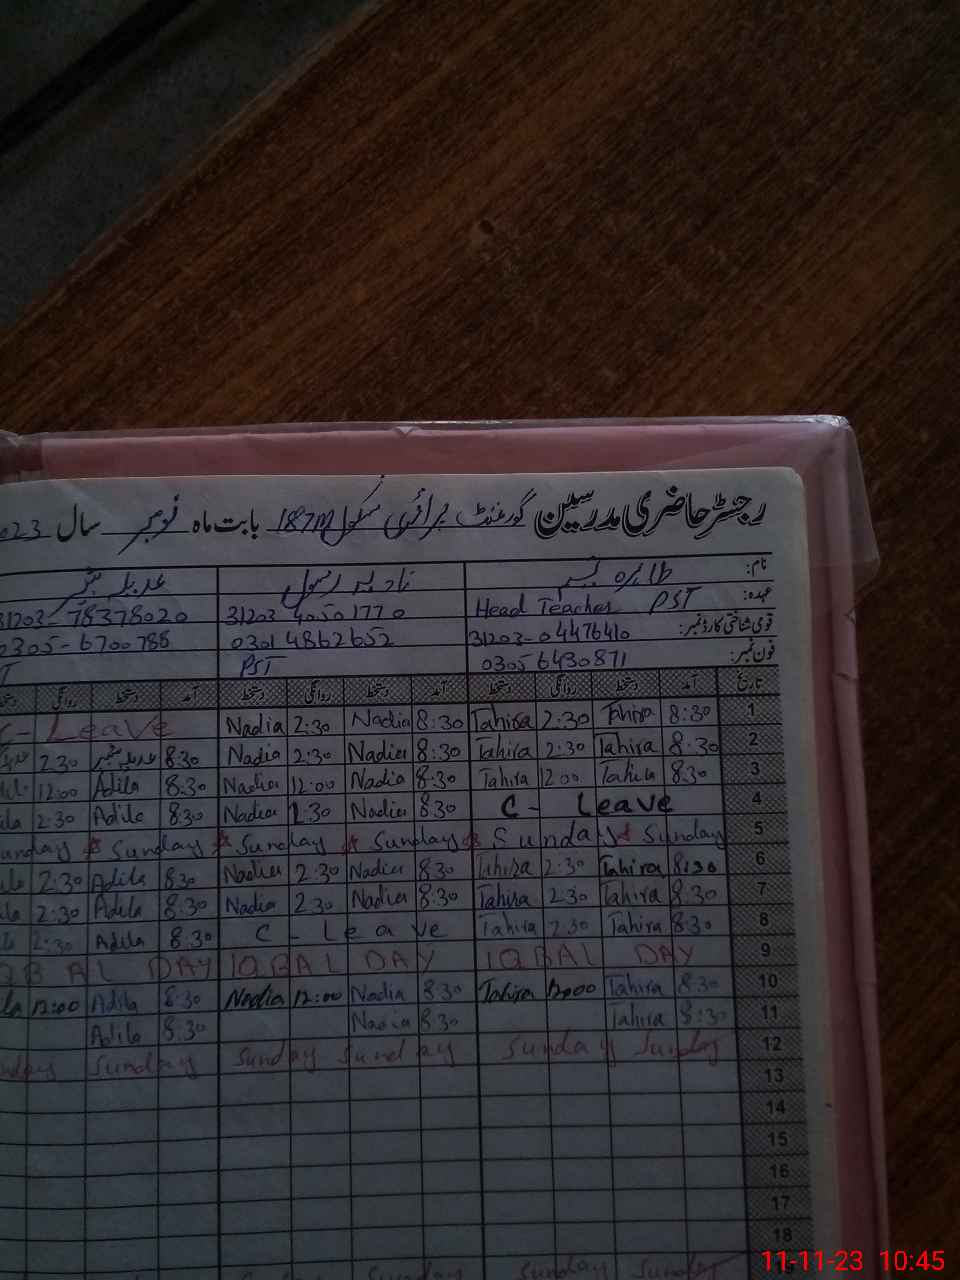 رجسٹر حاضری مدرسین گورنمنٹ پرائمری سکول 187M بابت ماہ نومبر سال 2023
نام: طاہرہ نادیہ رسول عدیلہ
عہدہ: Head Teacher PST 31203 4050177 0 31203-78378020
قومی شناختی کارڈ نمبر: 31203-0447640 0301 4862652 0305-6700786
فون نمبر: 0305 6430871 PST
تاریخ آمد دستخط روانگی دستخط آمد دستخط روانگی دستخط آمد دستخط روانگی
C- Leave Nadia 2:30 Nadia 8:30 Tahira 2:30 Tahira 8:30 1
2:30 8:30 Nadia 2:30 Nadia 8:30 Tahira 2:30 Tahira 8:30 2
12:00 Adila 8:30 Nadia 12:00 Nadia 8:30 Tahira 12:00 Tahira 8:30 3
2:30 Adila 8:30 Nadia 1:30 Nadia 8:30 C- Leave 4
Sunday * Sunday * Sunday * Sunday * Sunday * Sunday 5
2:30 Adila 8:30 Nadia 2:30 Nadia 8:30 Tahira 2:30 Tahira 8:30 6
2:30 Adila 8:30 Nadia 2:30 Nadia 8:30 Tahira 2:30 Tahira 8:30 7
2:30 Adila 8:30 C - Leave Tahira 2:30 Tahira 8:30 8
QBAL DAY IQBAL DAY IQBAL DAY 9
12:00 Adila 8:30 Nadia 12:00 Nadia 8:30 Tahira 12:00 Tahira 8:30 10
Adila 8:30 Nadia 8:30 Tahira 8:30 11
Sunday Sunday Sunday Sunday Sunday 12
13
14
15
16
17
18
Sunday Sunday Sunday
11-11-23 10:45